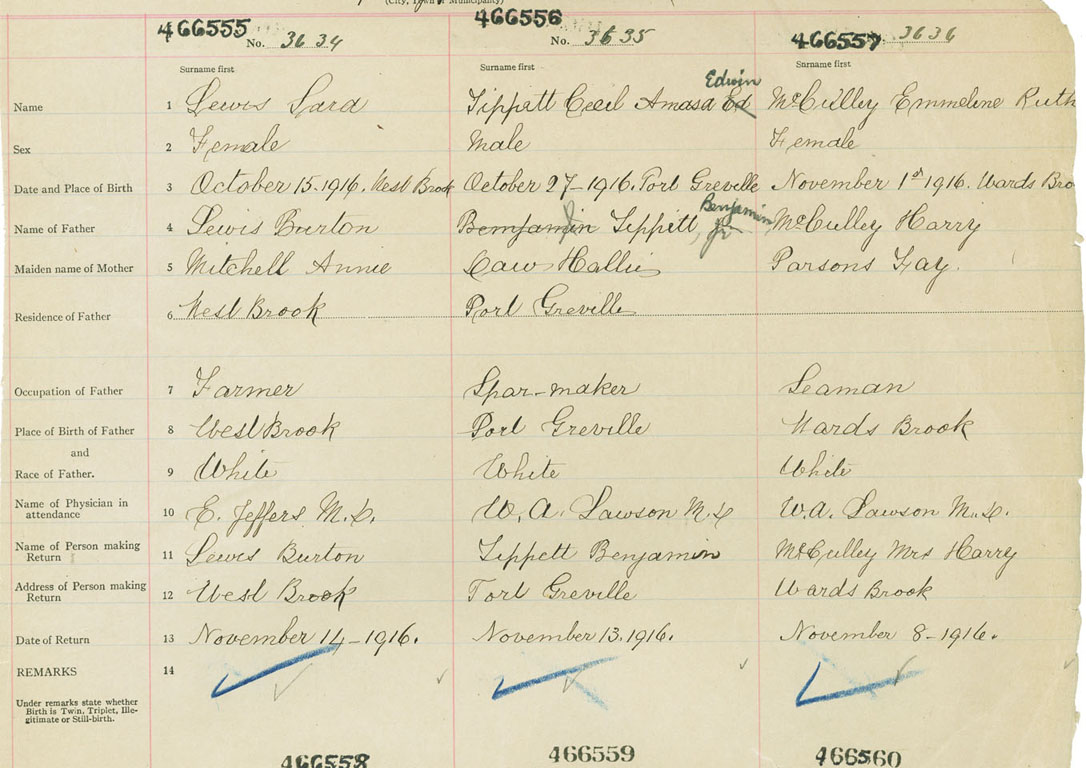 (City, Town or Municipality)
466555 466556 466557
No. 3634 No. 3635 3636
Surname first Surname first Surname first
Edwin
Name 1 Lewis Sara Tippett Cecil Amasa Ed McCulley Emmeline Ruth
Sex 2 Female Male Female
Date and Place of Birth 3 October 15-1916. West Brook October 27-1916. Port Greville November 1st 1916. Wards Bro
Benjamin
Name of Father 4 Lewis Burton Benjamin Tippett, Jr McCulley Harry
Maiden name of Mother 5 Mitchell Annie Caw Hallie Parsons Fay.
Residence of Father 6 West Brook Port Greville
Occupation of Father 7 Farmer Spar-maker Seaman
Place of Birth of Father 8 West Brook Port Greville Wards Brook
and
Race of Father. 9 White White White
Name of Physician in
attendance 10 E. Jeffers M.D. W. A. Lawson M.D W.A. Lawson M.D.
Name of Person making
Return 11 Lewis Burton Tippett Benjamin McCulley Mrs Harry
Address of Person making
Return 12 West Brook Port Greville Wards Brook
Date of Return 13 November 14-1916. November 13, 1916. November 8-1916.
REMARKS 14
Under remarks state whether
Birth is Twin, Triplet, Ille-
gitimate or Still-birth.
466558 466559 466560